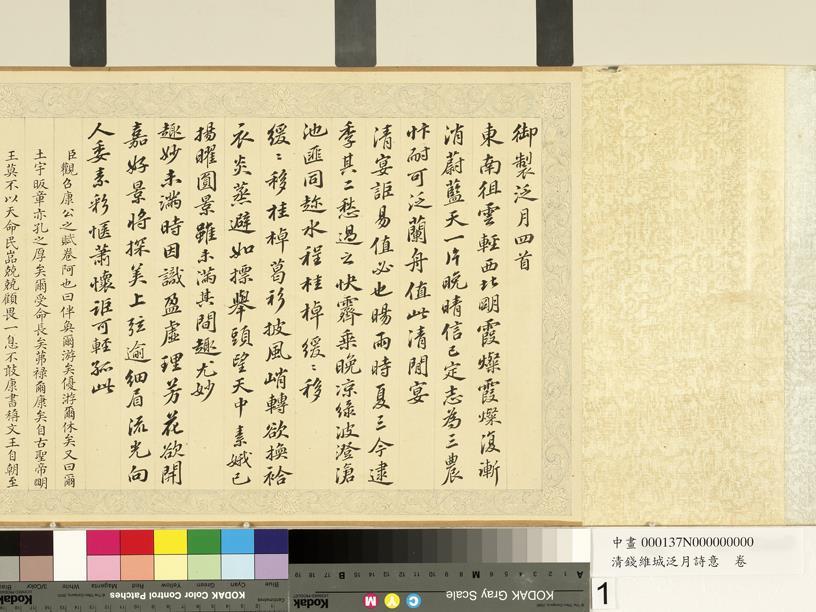 御製泛月四首
東南徂雲輕西北明霞燦霞燦復漸
消蔚藍天一片晚晴信已定志為三農
忭耐可泛蘭舟值此清閒宴
清宴詎易值必也暘雨時夏三今逮
季其二愁過之快霽乘晚涼綠波澄滄
池匪同趂水程桂棹緩〻移
緩〻移桂棹葛衫披風峭轉欲換袷
衣炎蒸避如摽舉頭望天中素娥已
揚曜圓景雖未滿其間趣尤妙
趣妙未滿時因識盈虛理芳花欲開
嘉好景將探美上弦逾細眉流光向
人委素彩愜蕭懷詎可輕孤此
臣觀召康公之賦卷阿也曰伴奐爾游矣優游爾休矣又曰爾
土宇昄章亦孔之厚矣爾受命長矣茀祿爾康矣自古聖帝明
王莫不以天命民嵒兢兢顧畏一息不敢康書稱文王自朝至
中畫 000137N000000000
清錢維城泛月詩意 卷
1
KODAK Color Control Patches
Kodak
Blue
Cyan
Green
Yellow
Red
Magenta
White
3/Color
KODAK Gray Scale
Kodak
C
Y
M
A 1 2 3 4 5 6 M 8 9 10 11 12 13 14 15 B 17 18 19